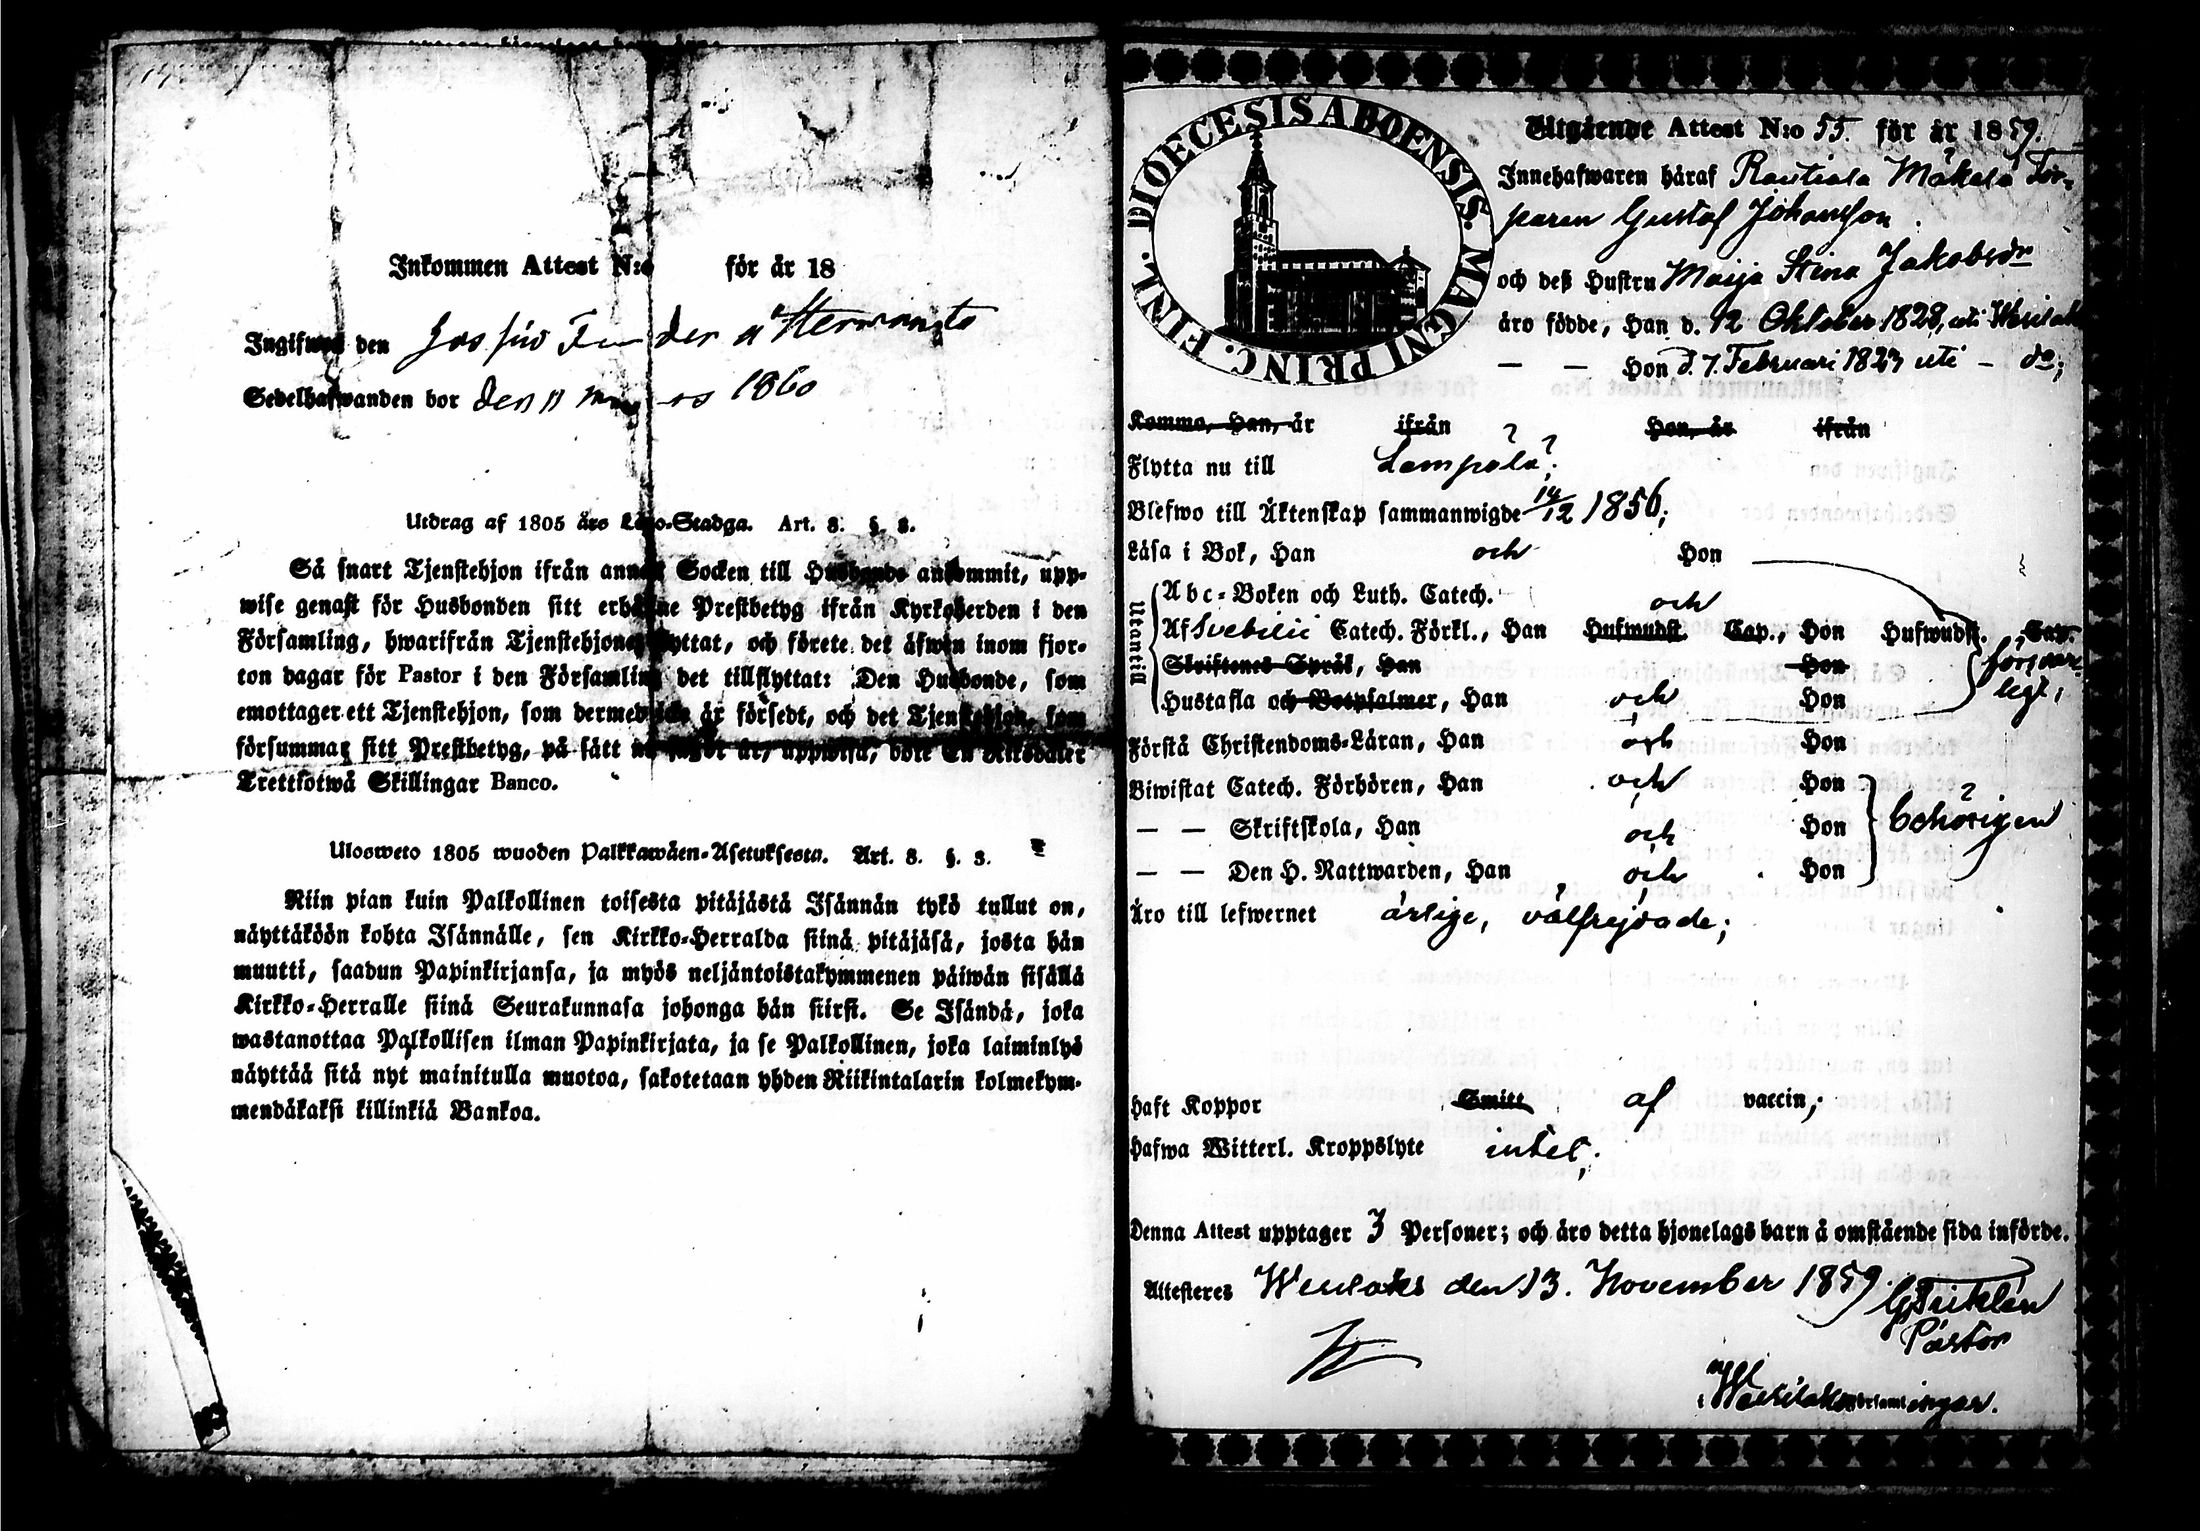 Inkommen Attest N:o för år 18
Ingifwen den
Sedelhafwanden bor den 11 1860
Utdrag af 1805 års Lego-Stadga. Art. 8. §. 8.
Så snart Tjenstehjon ifrån annan Socken till Husbonde ankommit, upp-
wise genast för Husbonden sitt erhållne Prestbetyg ifrån Kyrkoherden i den
Församling, hwarifrån Tjenstehjonet flyttat, och förete det äfwen inom fjor-
ton dagar för Pastor i den Församling det tillflyttat: Den Husbonde, som
emottager ett Tjenstehjon, som dermed icke är försedt, och det Tjenstehjon, som
försummar sitt Prestbetyg, på sätt nu sagdt är, uppwisa, böte En Riksdaler
Trettiotwå Skillingar Banco.
Ulosweto 1805 wuoden Palkkawäen-Asetuksesta. Art. 8. §. 8.
Niin pian kuin Palkollinen toisesta pitäjästä Isännän tykö tullut on,
näyttäköön kohta Isännälle, sen Kirkko-Herralda siinä pitäjäsä, josta hän
muutti, saadun Papinkirjansa, ja myös neljäntoistakymmenen päiwän sisällä
Kirkko-Herralle siinä Seurakunnasa johonga hän siirsi. Se Isändä, joka
wastanottaa Palkollisen ilman Papinkirjata, ja se Palkollinen, joka laiminlyö
näyttää sitä nyt mainitulla muotoa, sakotetaan yhden Riikintalarin kolmekym-
mendäkaksi killinkiä Bankoa.
DIOECESIS ABOENSIS. MAGNI PRINC. FINL.
Utgående Attest N:o 55. för år 1859.
Innehafwaren häraf Rautiala Mäkelä Tor-
paren Gustaf Johansson
och deß Hustru Maija Stina Jakobsdr
äro födde, Han d. 12 Oktober 1828, uti Wesilaks
— — Hon d. 7. Februari 1823 uti – do;
Komma, Han, år ifrån Hon, år ifrån
Flytta nu till Lempälä;
Blefwo till Äktenskap sammanwigde 14/12 1856;
Läsa i Bok, Han och Hon
Utantill
Abc-Boken och Luth. Catech. och
Af Svebilii Catech. Förkl., Han Hufwudst. Cap., Hon Hufwudst. Cap.
Skriftenes Språk, Han Hon
försvar-
ligt;
Hustafla och Botpsalmer, Han och Hon
Förstå Christendoms-Läran, Han och Hon
Biwistat Catech. Förhören, Han och Hon
— — Skriftskola, Han och Hon behörigen
— — Den H. Nattwarden, Han och Hon
Äro till lefwernet ärlige, välfrejdade;
Haft Koppor Smitt af vaccin;
Hafwa Witterl. Kroppslyte intet;
Denna Attest upptager 3 Personer; och äro detta hjonelags barn å omstående sida införde.
Attesteres Wesilaks den 13. November 1859.
Pastor
i Wesilaks församlingar.